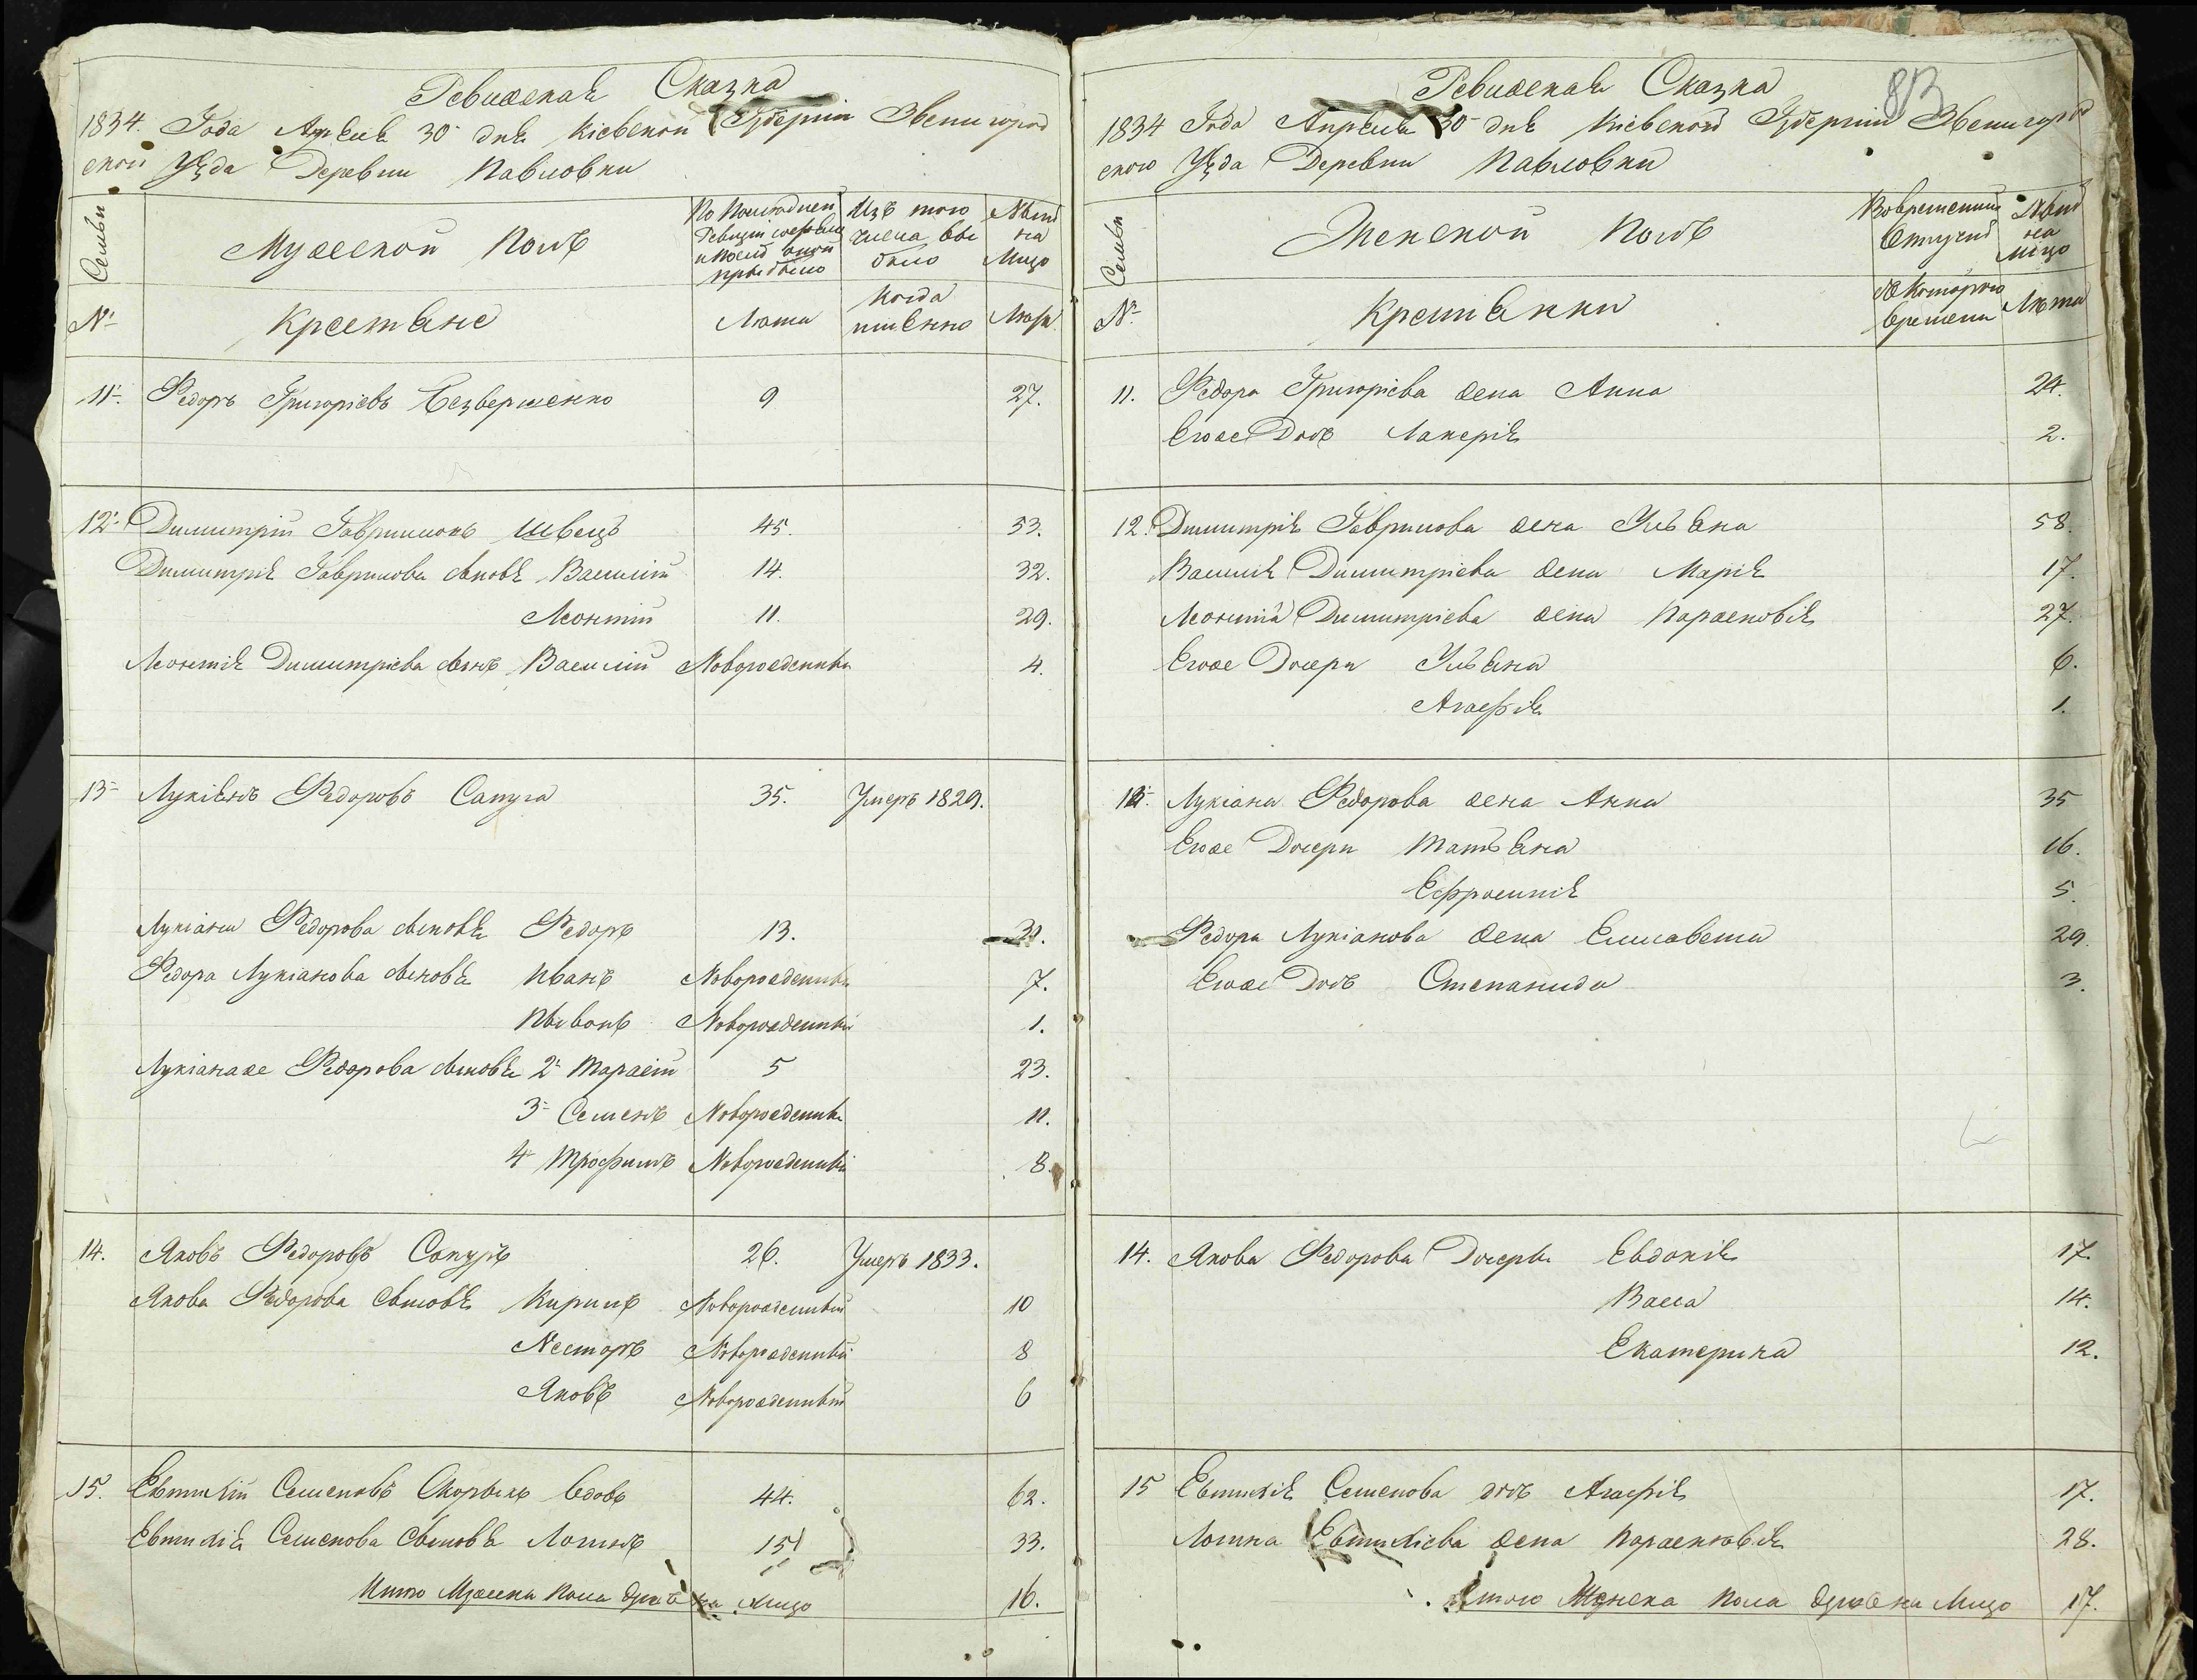 Ревизская Сказка
1834. Года Апреля 30 дня Кіевской Губерніи Звенигород
ской Уѣзда Деревни Павловки
Семьи
Мужеской Полъ
По Последней
Ревизіи состояло
и после оной
прибыло
Изъ того
числа вы
было
Ныне
на
Лицо
№
Крестяне
Лета
Когда
имянно
Лета
11. Федоръ Григоріевъ Безвершенко 9 27.
12. Димитрій Гавриловъ Швецъ 45. 53.
Димитрія Гаврилова сыновя Василій 14. 32.
Леонтій 11. 29.
Леонтія Димитріева сынъ Василій Новорожденный 4.
13 Лукіянъ Федоровъ Сапуга 35. Умеръ 1829.
Лукіана Федорова сыновя Федоръ 13. 31.
Федора Лукіанова сыновя Иванъ Новорожденный 7.
Пывонъ Новорожденный 1.
Лукіанаже Федорова сыновя 2 Тарасій 5 23.
3 Семенъ Новорожденный 11.
4 Трофимъ Новорожденный 8.
14. Яковъ Федоровъ 26. Умеръ 1833.
Якова Федорова сыновя Кирилъ Новорожденный 10
Несторъ Новорожденный 8
Яковъ Новорожденный 6
15. Евтихій Семеновъ Скорыкъ вдовъ 44. 62.
Евтихія Семенова сыновя Логинъ 15 33.
Итого Мужеска Пола душъ на Лицо 16.
813
Ревизская Сказка
1834 Года Апреля 30 дня Кіевской Губерніи Звенигород
ского Уѣзда Деревни Павловки
Семьи
Женской Полъ
Вовременной
отлучке
Ныне
на
лицо
№
Крестянки
Съ Которого
времени
Лета
11. Федора Григоріева жена Анна 24.
Егоже Дочь Лакерія 2.
12. Димитрія Гаврилова жена Ульяна 58.
Василія Димитріева жена Марія 17.
Леонтія Димитріева жена Парасковія 27.
Егоже Дочери Ульяна 6.
Агафія 1.
13. Лукіана Федорова жена Анна 35
Егоже Дочери Татьяна 16.
Ефросинія 5.
Федора Лукіанова жена Елисавета 29.
Егоже Дочь Степанида 3.
14. Якова Федорова Дочеры Евдокія 17.
Васса 14.
Екатерина 12.
15 Евтихія Семенова дочь Агафія 17.
Логина Евтихіева жена Парасковія 28.
Итого Женска Пола душъ на Лицо 17.